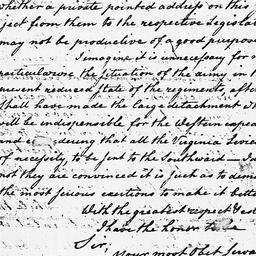 whether a private pointed address on this
ject from them to the respective Legisla
may not be productive of a good purpose
I imagine it is unnecessary for
particularize the situation of the army in
present reduced state of the regiments, after
shall have made the large detachment wh
will be indispensible for the Western expe
and dering that all the Virginia Levies
of necessity, to be sent to the Southward
not they are convinced it is just as to dem
the most serious exertions to make it bett
With the greatest respect & est
I have the honor to be
Sir,
Your most Obet Serva